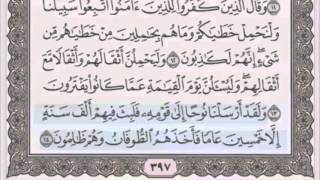 ١١ وَقَالَ الَّذِينَ كَفَرُوا لِلَّذِينَ ءَامَنُوا اتَّبِعُوا سَبِيلَنَا
وَلْنَحْمِلْ خَطَٰيَٰكُمْ وَمَا هُم بِحَٰمِلِينَ مِنْ خَطَٰيَٰهُم مِّن
شَىْءٍ إِنَّهُمْ لَكَٰذِبُونَ ١٢ وَلَيَحْمِلُنَّ أَثْقَالَهُمْ وَأَثْقَالًا مَّعَ
أَثْقَالِهِمْ وَلَيُسْـَٔلُنَّ يَوْمَ الْقِيَٰمَةِ عَمَّا كَانُوا يَفْتَرُونَ
١٣ وَلَقَدْ أَرْسَلْنَا نُوحًا إِلَىٰ قَوْمِهِۦ فَلَبِثَ فِيهِمْ أَلْفَ سَنَةٍ
إِلَّا خَمْسِينَ عَامًا فَأَخَذَهُمُ الطُّوفَانُ وَهُمْ ظَٰلِمُونَ ١٤
٣٩٧